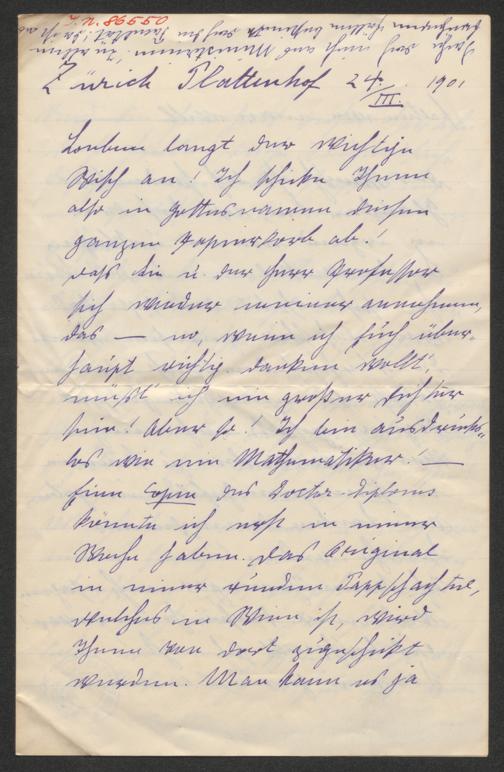 I. N. 86550
Zürich Plattenhof 24/III. 1901
Soeben langt der wichtige
Wisch an! Ich schicke Ihnen
also in Gottesnamen diesen
ganzen Papierkorb ab!
daß Sie u. der Herr Professor
sich wieder meiner annehmen,
das — no, wenn ich Euch über-
haupt richtig danken wollt',
müßt' ich ein großer Dichter
sein! Aber so! Ich bin ausdrucks-
los wie ein Mathematiker! —
Eine Copie des Doctor-Diploms
könnte ich erst in einer
Woche haben. Das Original
in einer runden Pappschachtel,
welches in Wien ist, wird
Ihnen von dort zugeschickt
werden. Man kann es ja